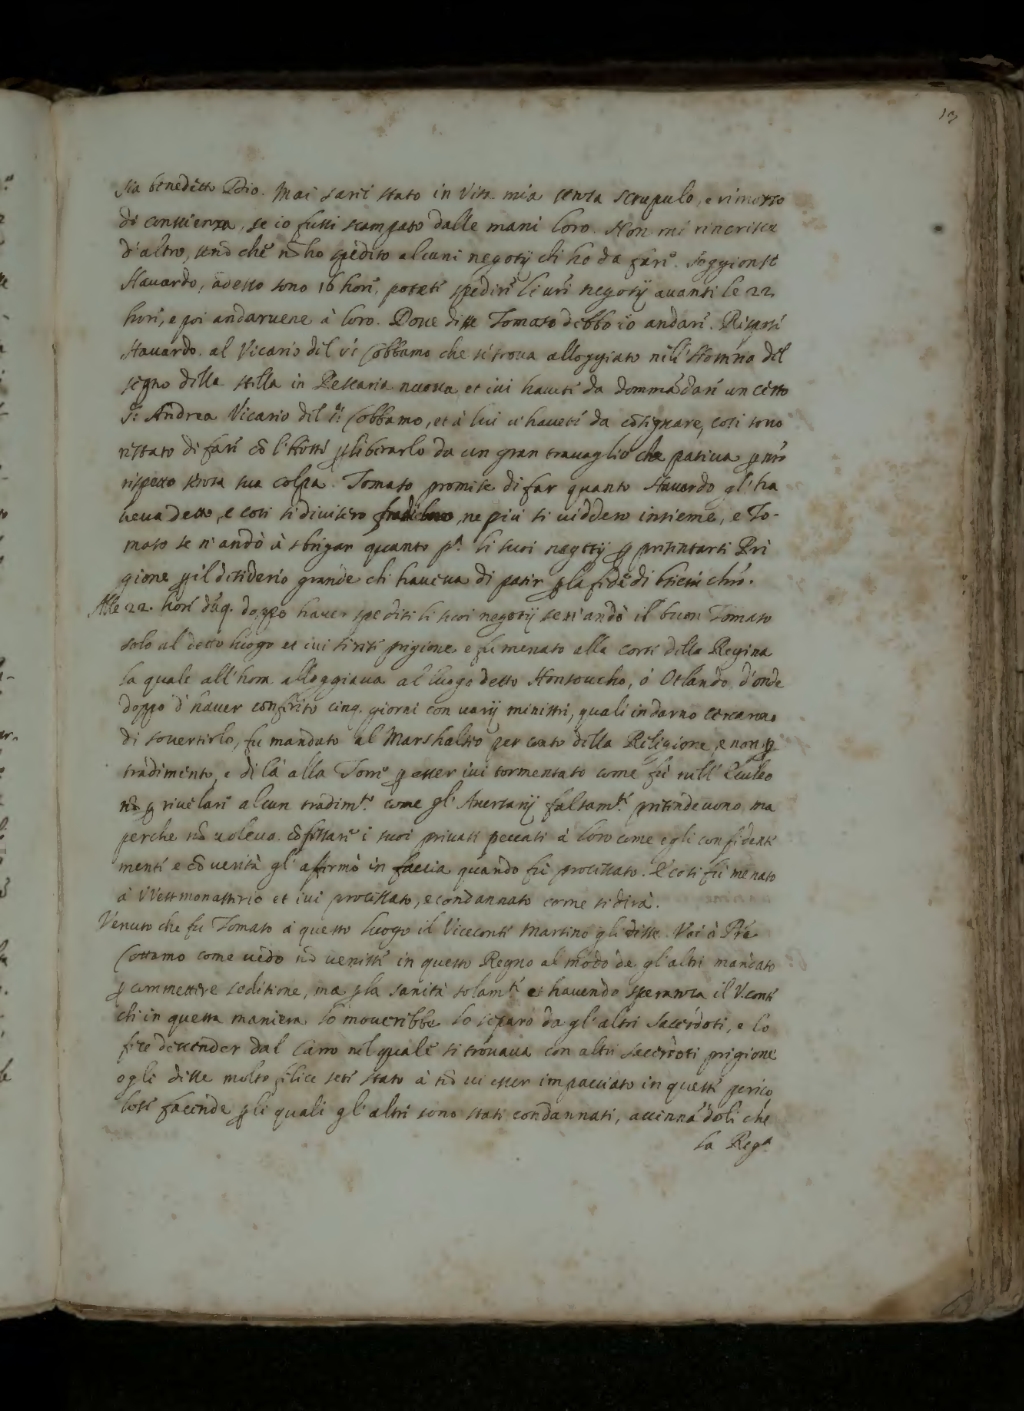 13
Sia benedetto Dio. Mai sarei stato in vita mia senza scrupulo, e rimorso
di conscienza, se io fussi scampato dalle mani loro. Non mi rincresce
d'altro, senò che nõ ho spedito alcuni negotij ch' ho da fare. Soggionse
Hauardo, adesso sono 16 hore, potete spedire li vrī negotij auanti le 22
hore, e poi andaruene à loro. Doue disse Tomaso debbo io andare. Rispose
Hauardo. al Vicario del Cobbamo che si troua alloggiato nell' Hosteria del
segno della stella in Pescaria nuoua et iui hauete da dommãdare un certo
Andrea Vicario del Cobbamo, et à lui u' hauete da cõsignare, cosi sono
restato di fare cõ l' ꝑ liberarlo da un gran trauaglio che patiua ꝑ mio
rispetto senza sua colpa. Tomaso promise di far quanto Hauardo gl' ha
ueua detto, e cosi si diuisero fra di loro, ne piu si uiddero insieme, e To-
maso se n' andò à sbrigar quanto pª. li suoi negotij ꝑ presentarsi Pri
gione ꝑ il desiderio grande che haueua di patir ꝑ la fede di Giesù chrō.
Alle 22. hore dũq. doppo hauer spediti li suoi negotij se n' andò il buon Tomaso
solo al detto luogo et iui si rese prigione e fù menato alla corte della Regina
la quale all' hora alloggiaua al luogo detto Honsoucho, ò Otlando, d'onde
doppo d' hauer conferito cinq. giorni con uarij ministri, quali indarno cercarono
di souertirlo, fu mandato al Marshalseo per conto della Religione, e non ꝑ
tradimento, e di là alla Torre ꝑ esser iui tormentato come fù sull' Eculeo
nõ ꝑ riuelare alcun tradimᵗᵒ. come gl' Auersarij falsamᵗᵉ pretendeuono, ma
perche nõ uoleua cõfessare i suoi priuati peccati à loro come egli confident
mente e cõ uerità gl' affermò in faccia quando fù processato. E cosi fù menato
à Westmonasterio et iui processato, e condannato come si dirà.
Venuto che fu Tomaso à questo luogo il Viceconte Martino gli disse. Voi ò Prē
Cottamo come uedo nõ ueniste in questo Regno al modo da gl' altri mandato
ꝑ commettere seditione, ma ꝑ la sanità solamᵗᵉ et hauendo speranza il V.conte
ch' in questa maniera lo mouerebbe lo separò da gl' altri Sacerdoti, e lo
fece descender dal carro nel quale si trouaua con altri sacerdoti prigione
e gli disse molto felice sete stato à nõ ui esser impacciato in queste perico
lose facende ꝑ li quali gl' altri sono stati condannati, accennãdoli che
la Regª